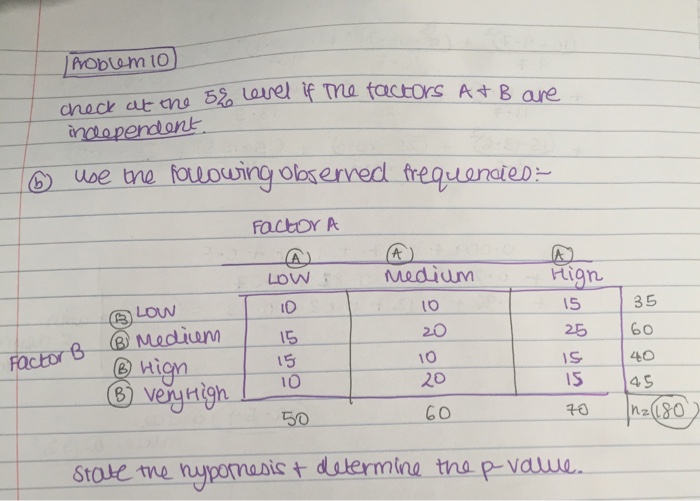 Problem 10
check at the 5% level if the factors A + B are
independent.
(b) use the following observed frequencies:-
Factor A
(A) (A) (A)
LOW Medium High
(B) LOW 10 10 15 35
(B) Medium 15 20 25 60
Factor B
(B) High 15 10 15 40
(B) Very High 10 20 15 45
50 60 70 n=180
State the hypothesis + determine the p-value.